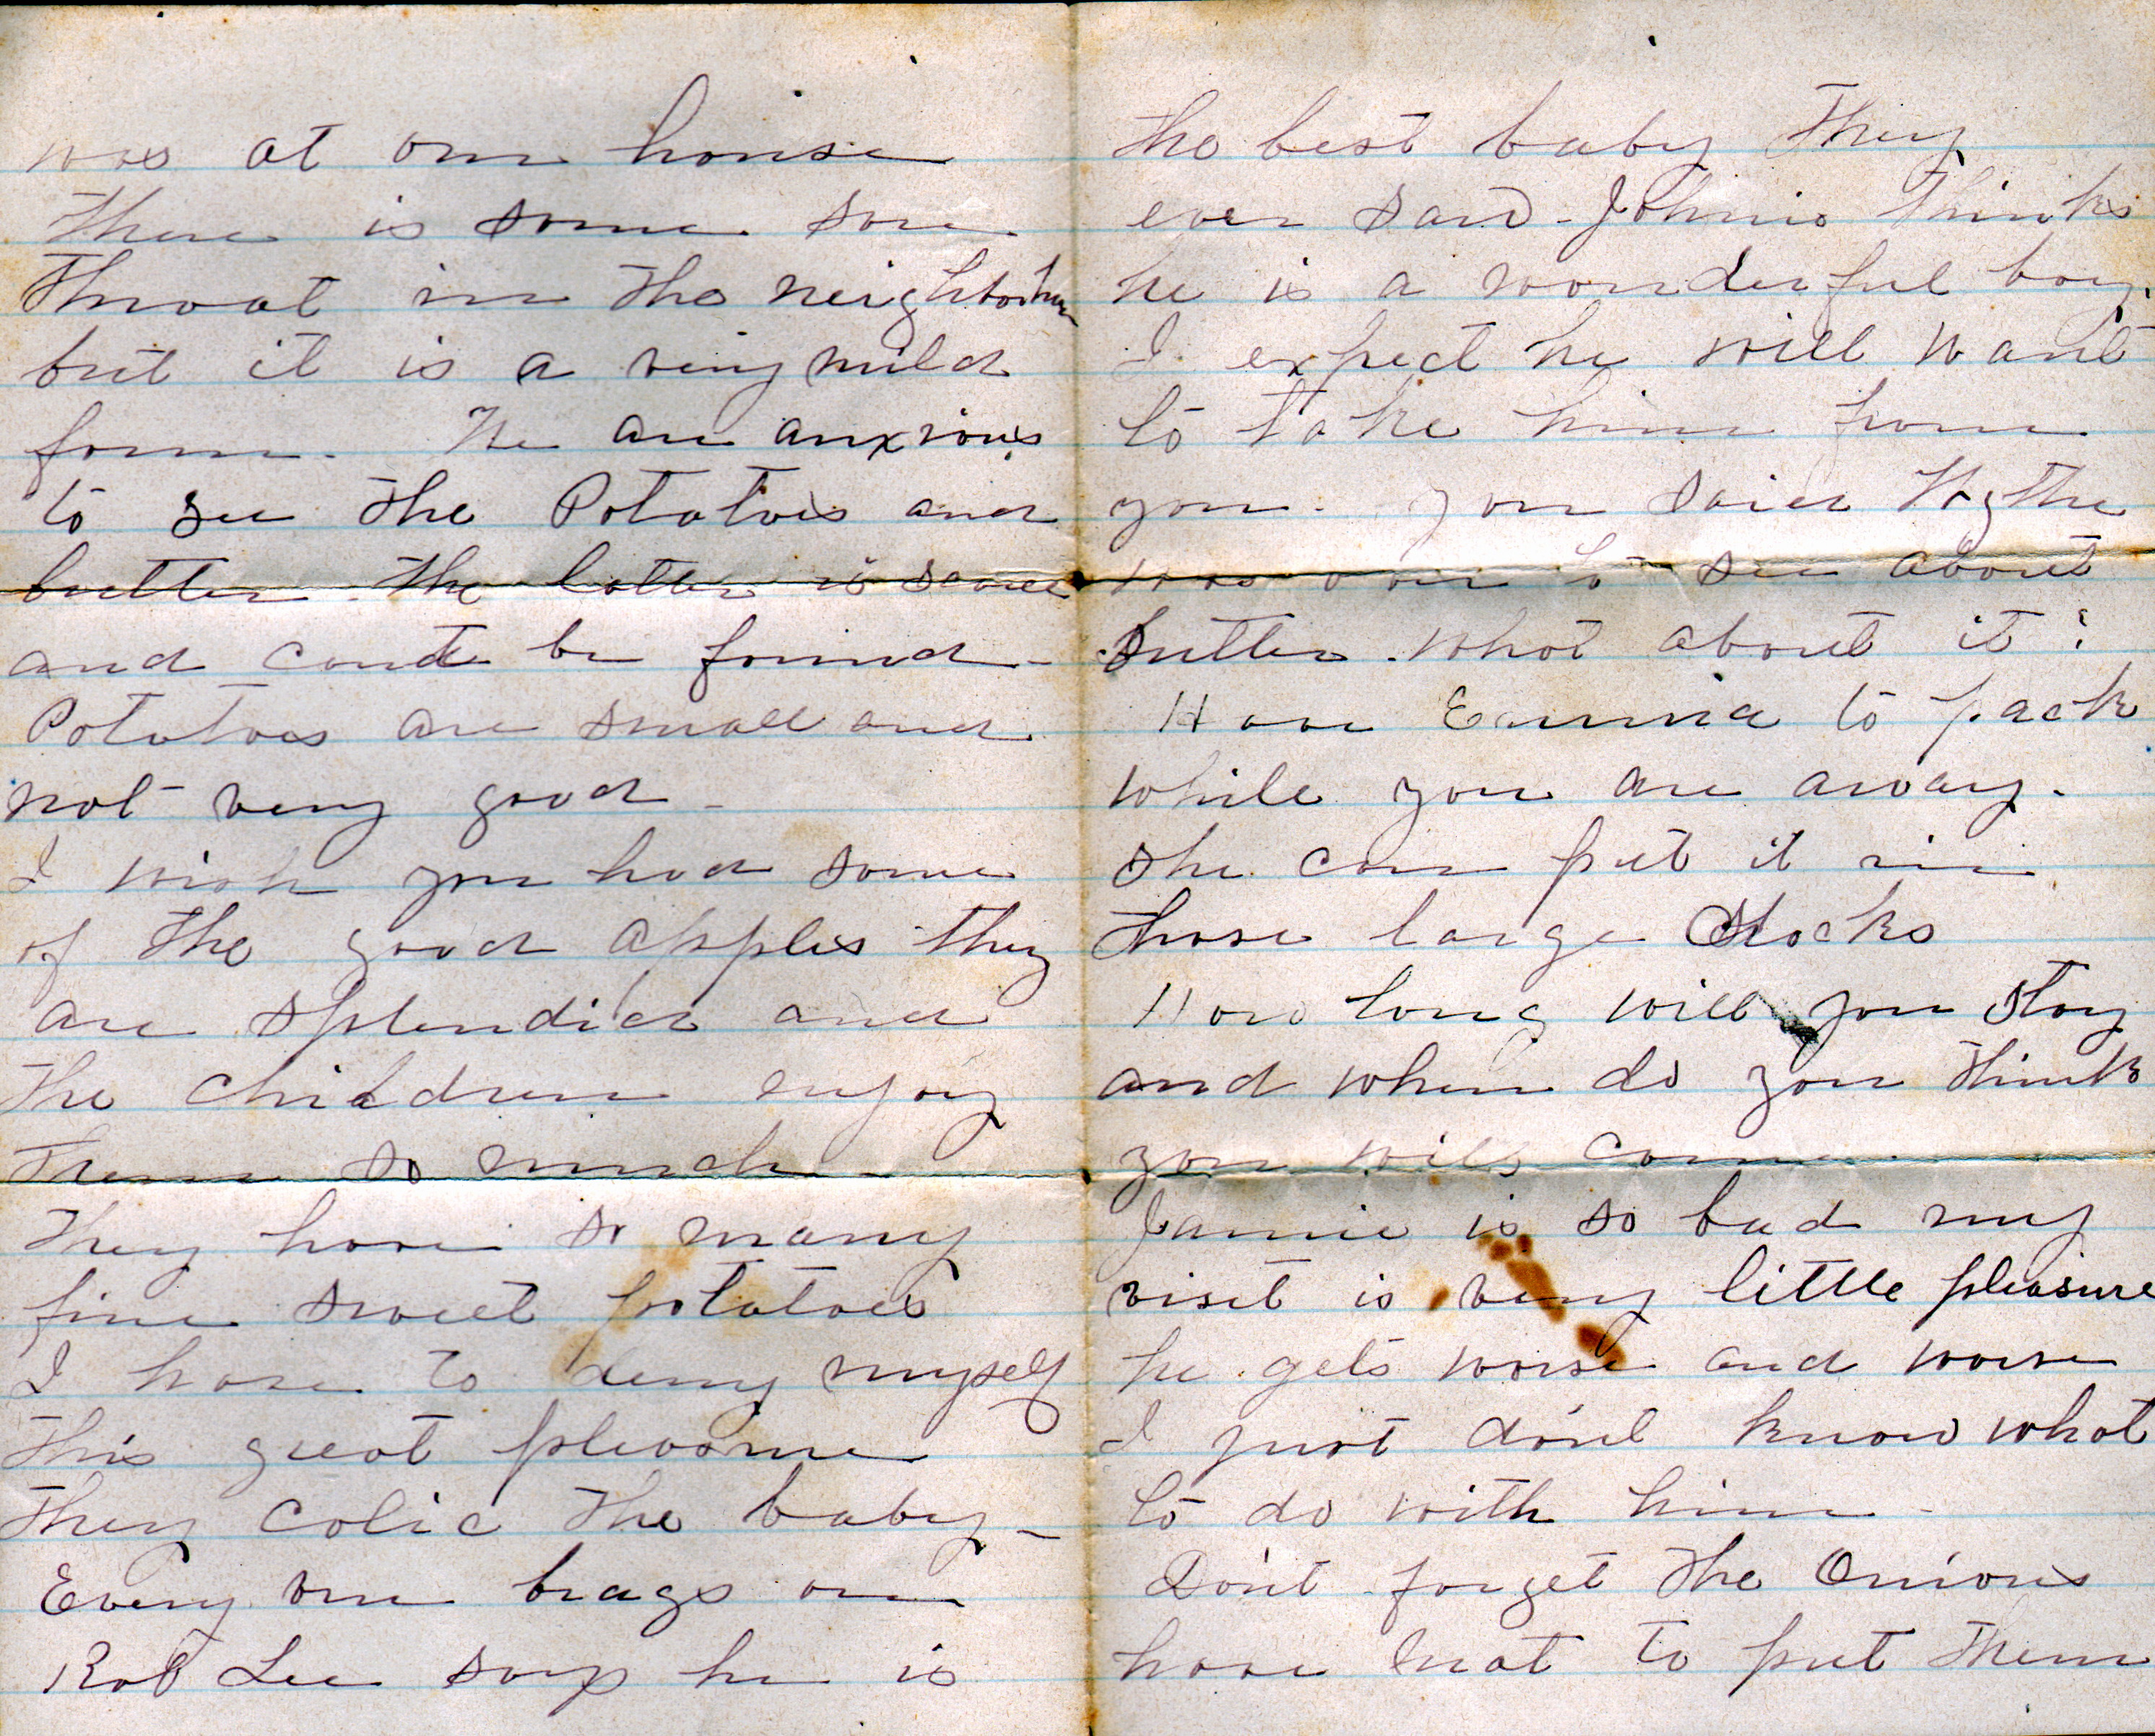 was at our house
There is some sore
throat in the neighborhu
but it is a very mild
form. We are anxious
to see the Potatoes and
butter. The latter is scarce
and cant be found -
Potatoes are small and
not very good -
I wish you had some
of the good apples they
are splendid and
the children enjoy
them so much -
They have so many
fine sweet potatoes
I have to deny myself
this great pleasure
they colic the baby -
Every one brags on
Rob Lee says he is
the best baby they
ever saw - Johnie thinks
he is a wonderful boy.
I expect he will want
to take him from
you. you said
was over to see about
butter. what about it?
Have Emma to pack
while you are away.
She can put it in
those large
How long will you stay
and when do you think
you will come.
Jamie is so bad my
visit is very little pleasure
he gets worse and worse
I just don't know what
to do with him -
Don't forget the Onions
have Mat to put them